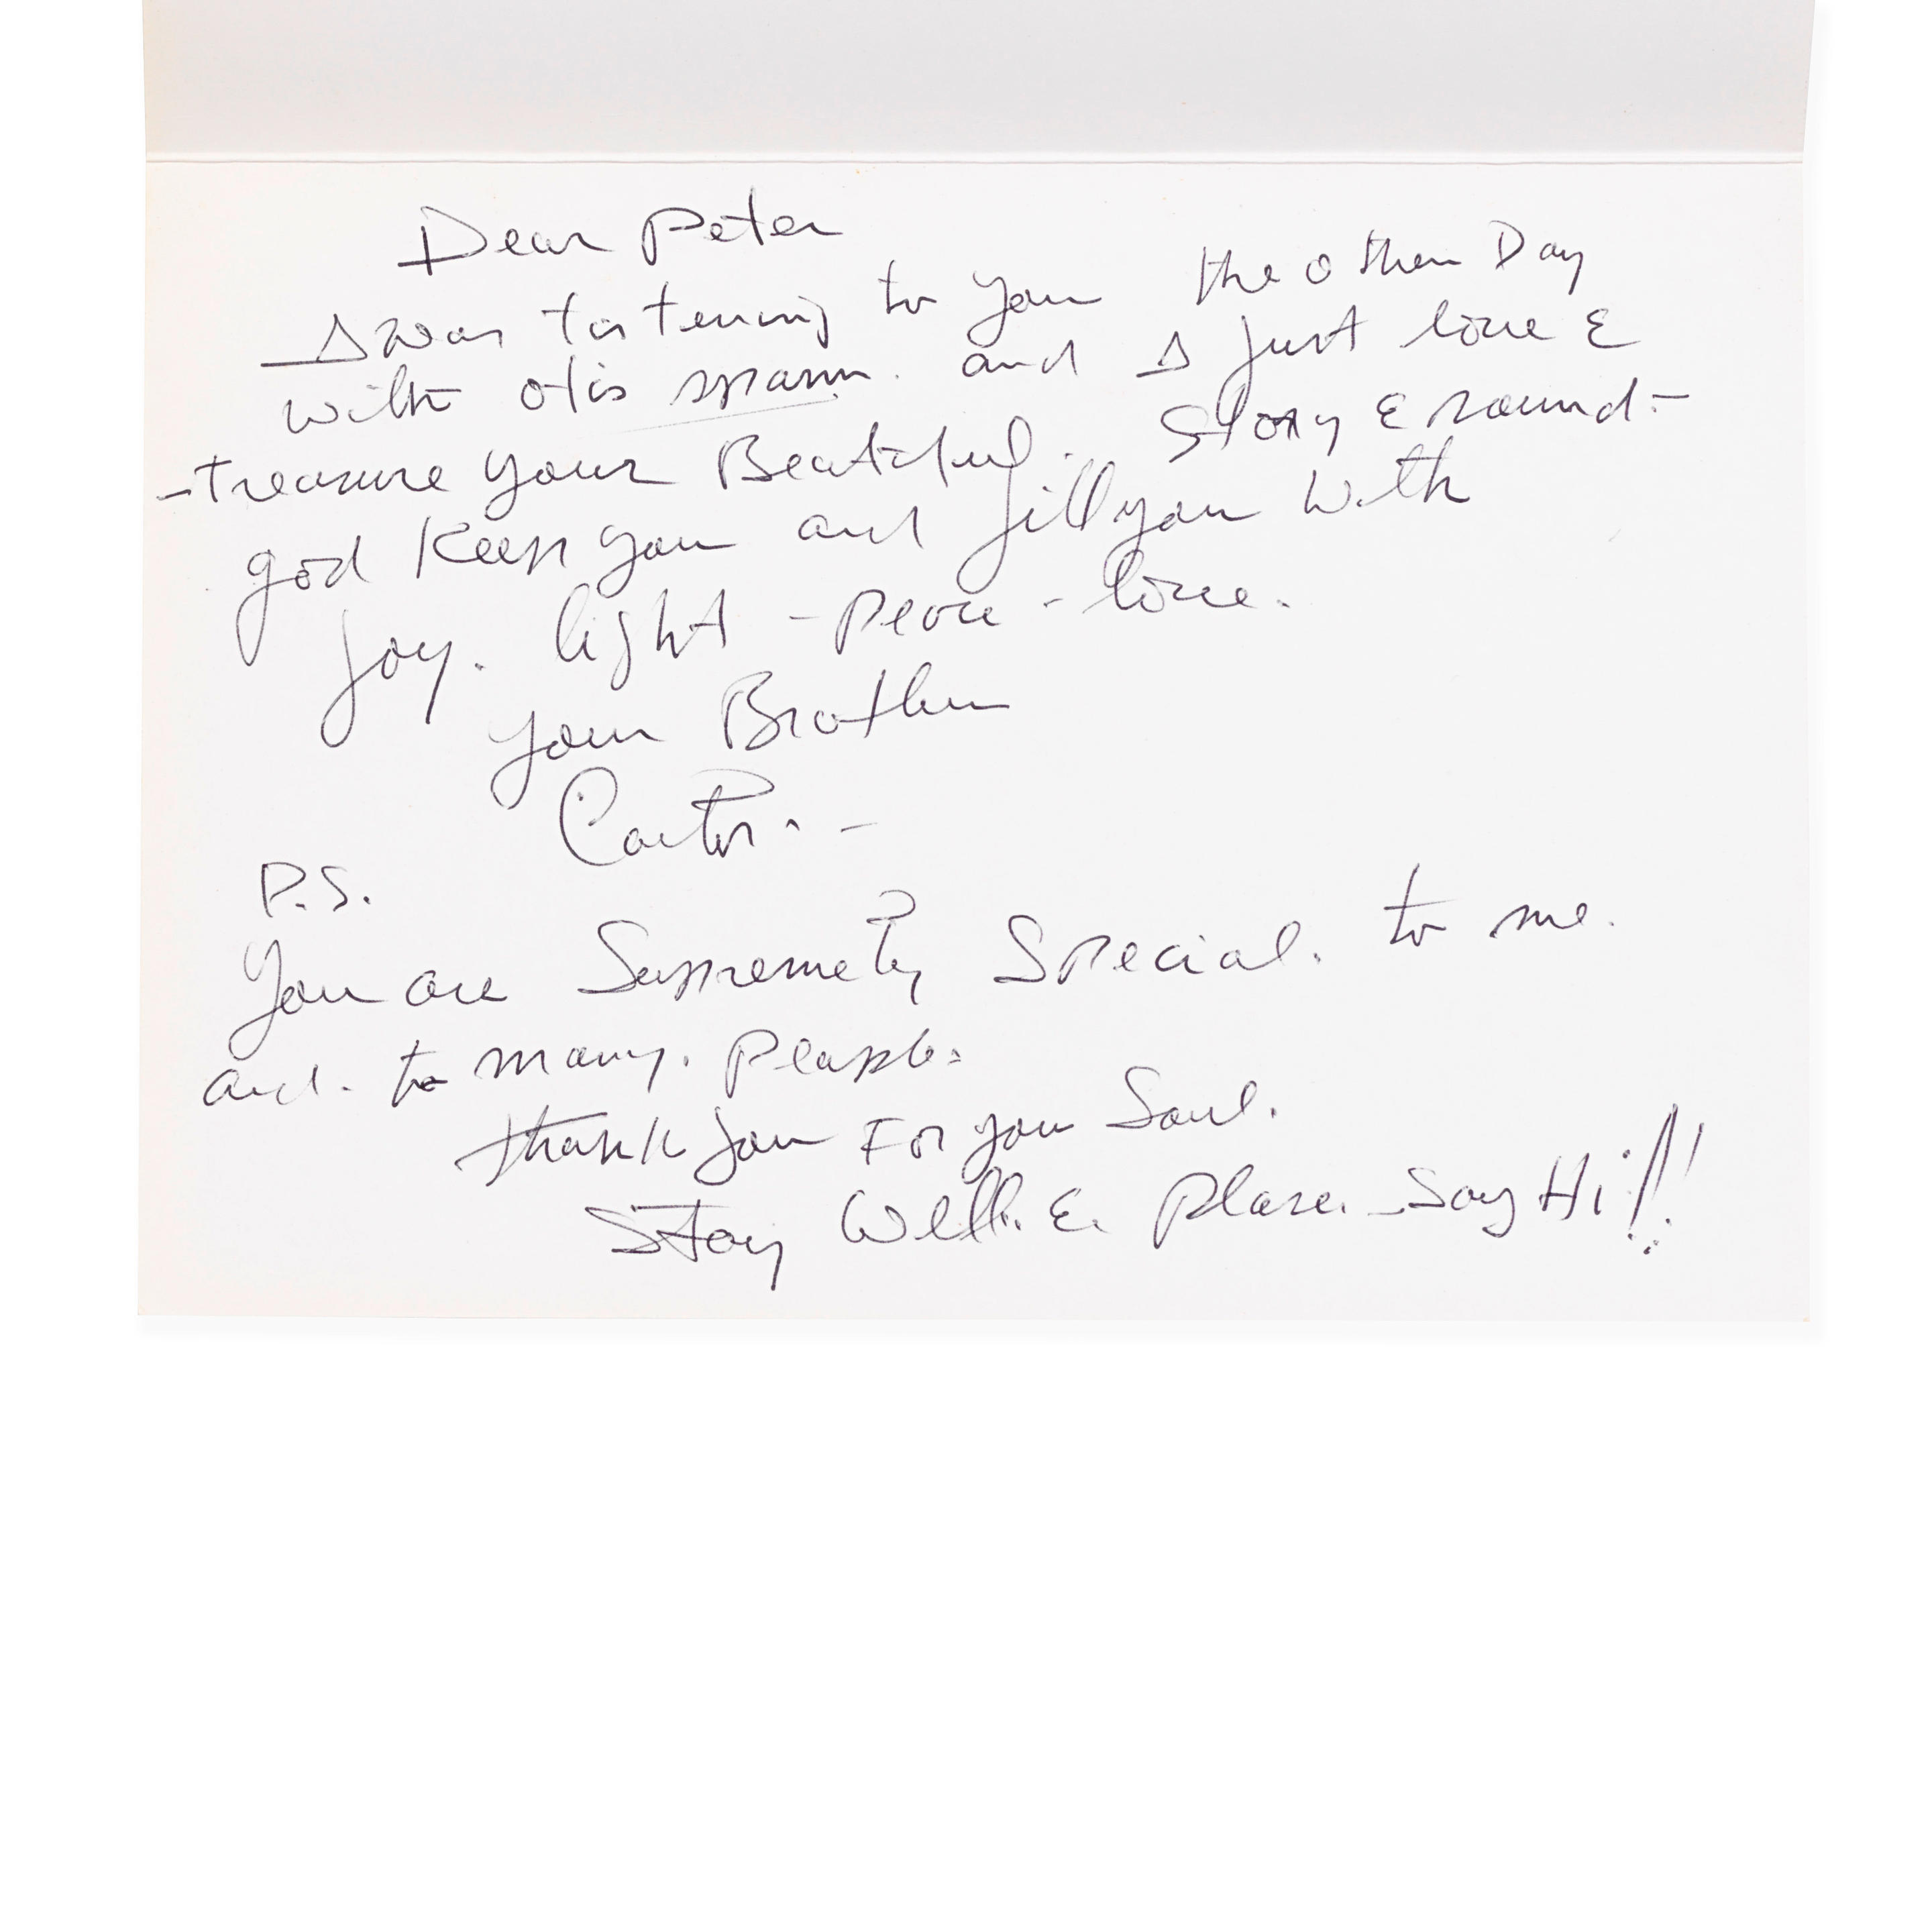 Dear Peter
I was listening to you the other Day
with otis spann. and I Just love &
- treasure your Beatiful. Story & sound -
god Keep you and fill you With
Joy. light - Peace - love.
your Brother
Carlos. -
P.S.
You are Supremely Special. to me.
and. to many. People.
thank you For you Soul.
Stay Well. & Please. - Say Hi!!!